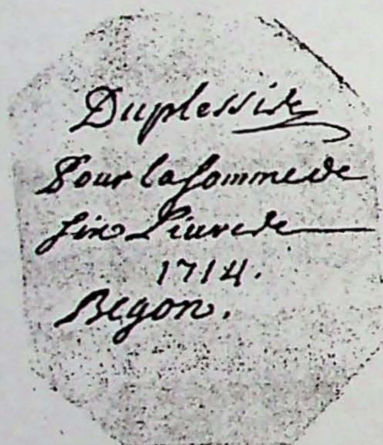 Duplessis
Pour la somme de
six Liures
1714.
Begon.